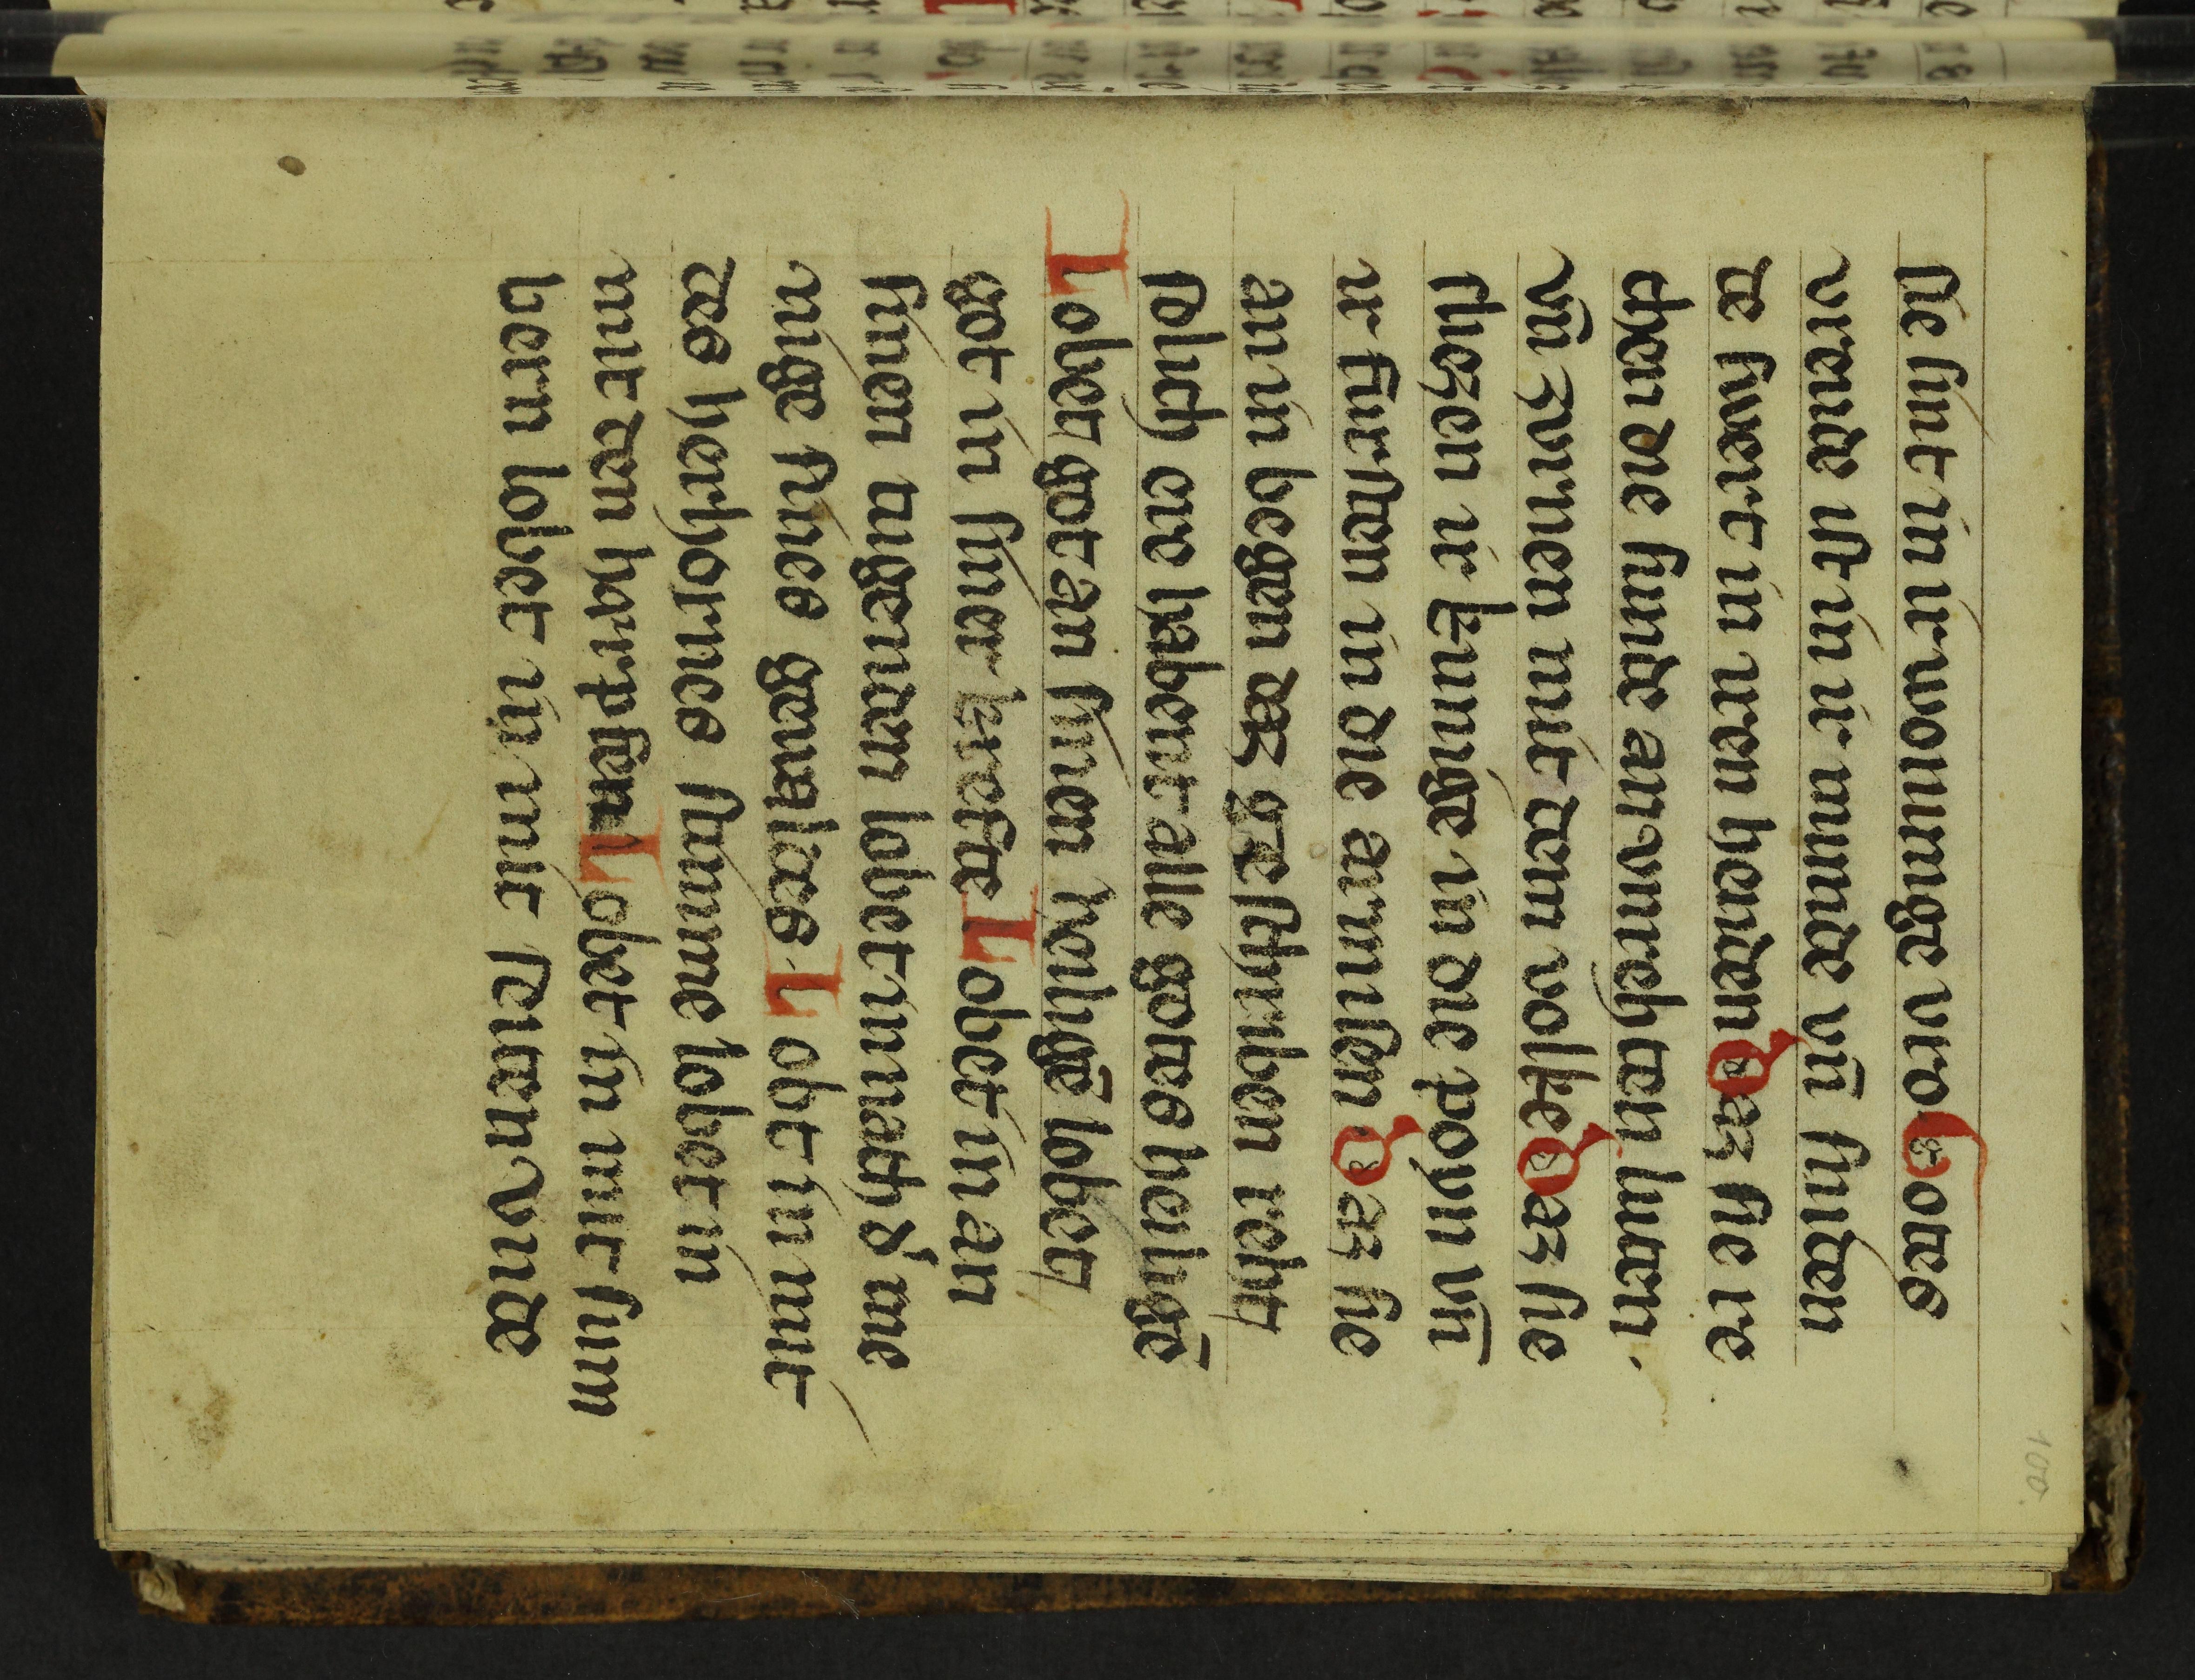 sle sint in ir wonunge vro Gotes
vreude ist in ir munde vñ sniden
de swert in iren henden Daz sie re
chen die sunde an vnrechten luten.
vñ zvrnen mit dem volke Daz sie
sliezen ir kunige in die poyin vñ
ir fursten in die armilen Daz sie
an in began daz geschriben reht
solich ere habent alle gotes heiliḡ
Lobet got an sinen heiliḡe lobet
got in siner krefte Lobet in an
sinen tugenden lobet in nach d' me
nige sines gewaldes Lobt in mit
des herhornes stimme lobet in
mit dem harpfen Lobet in mit sum
bern lobet in mit seiten vnde
100.